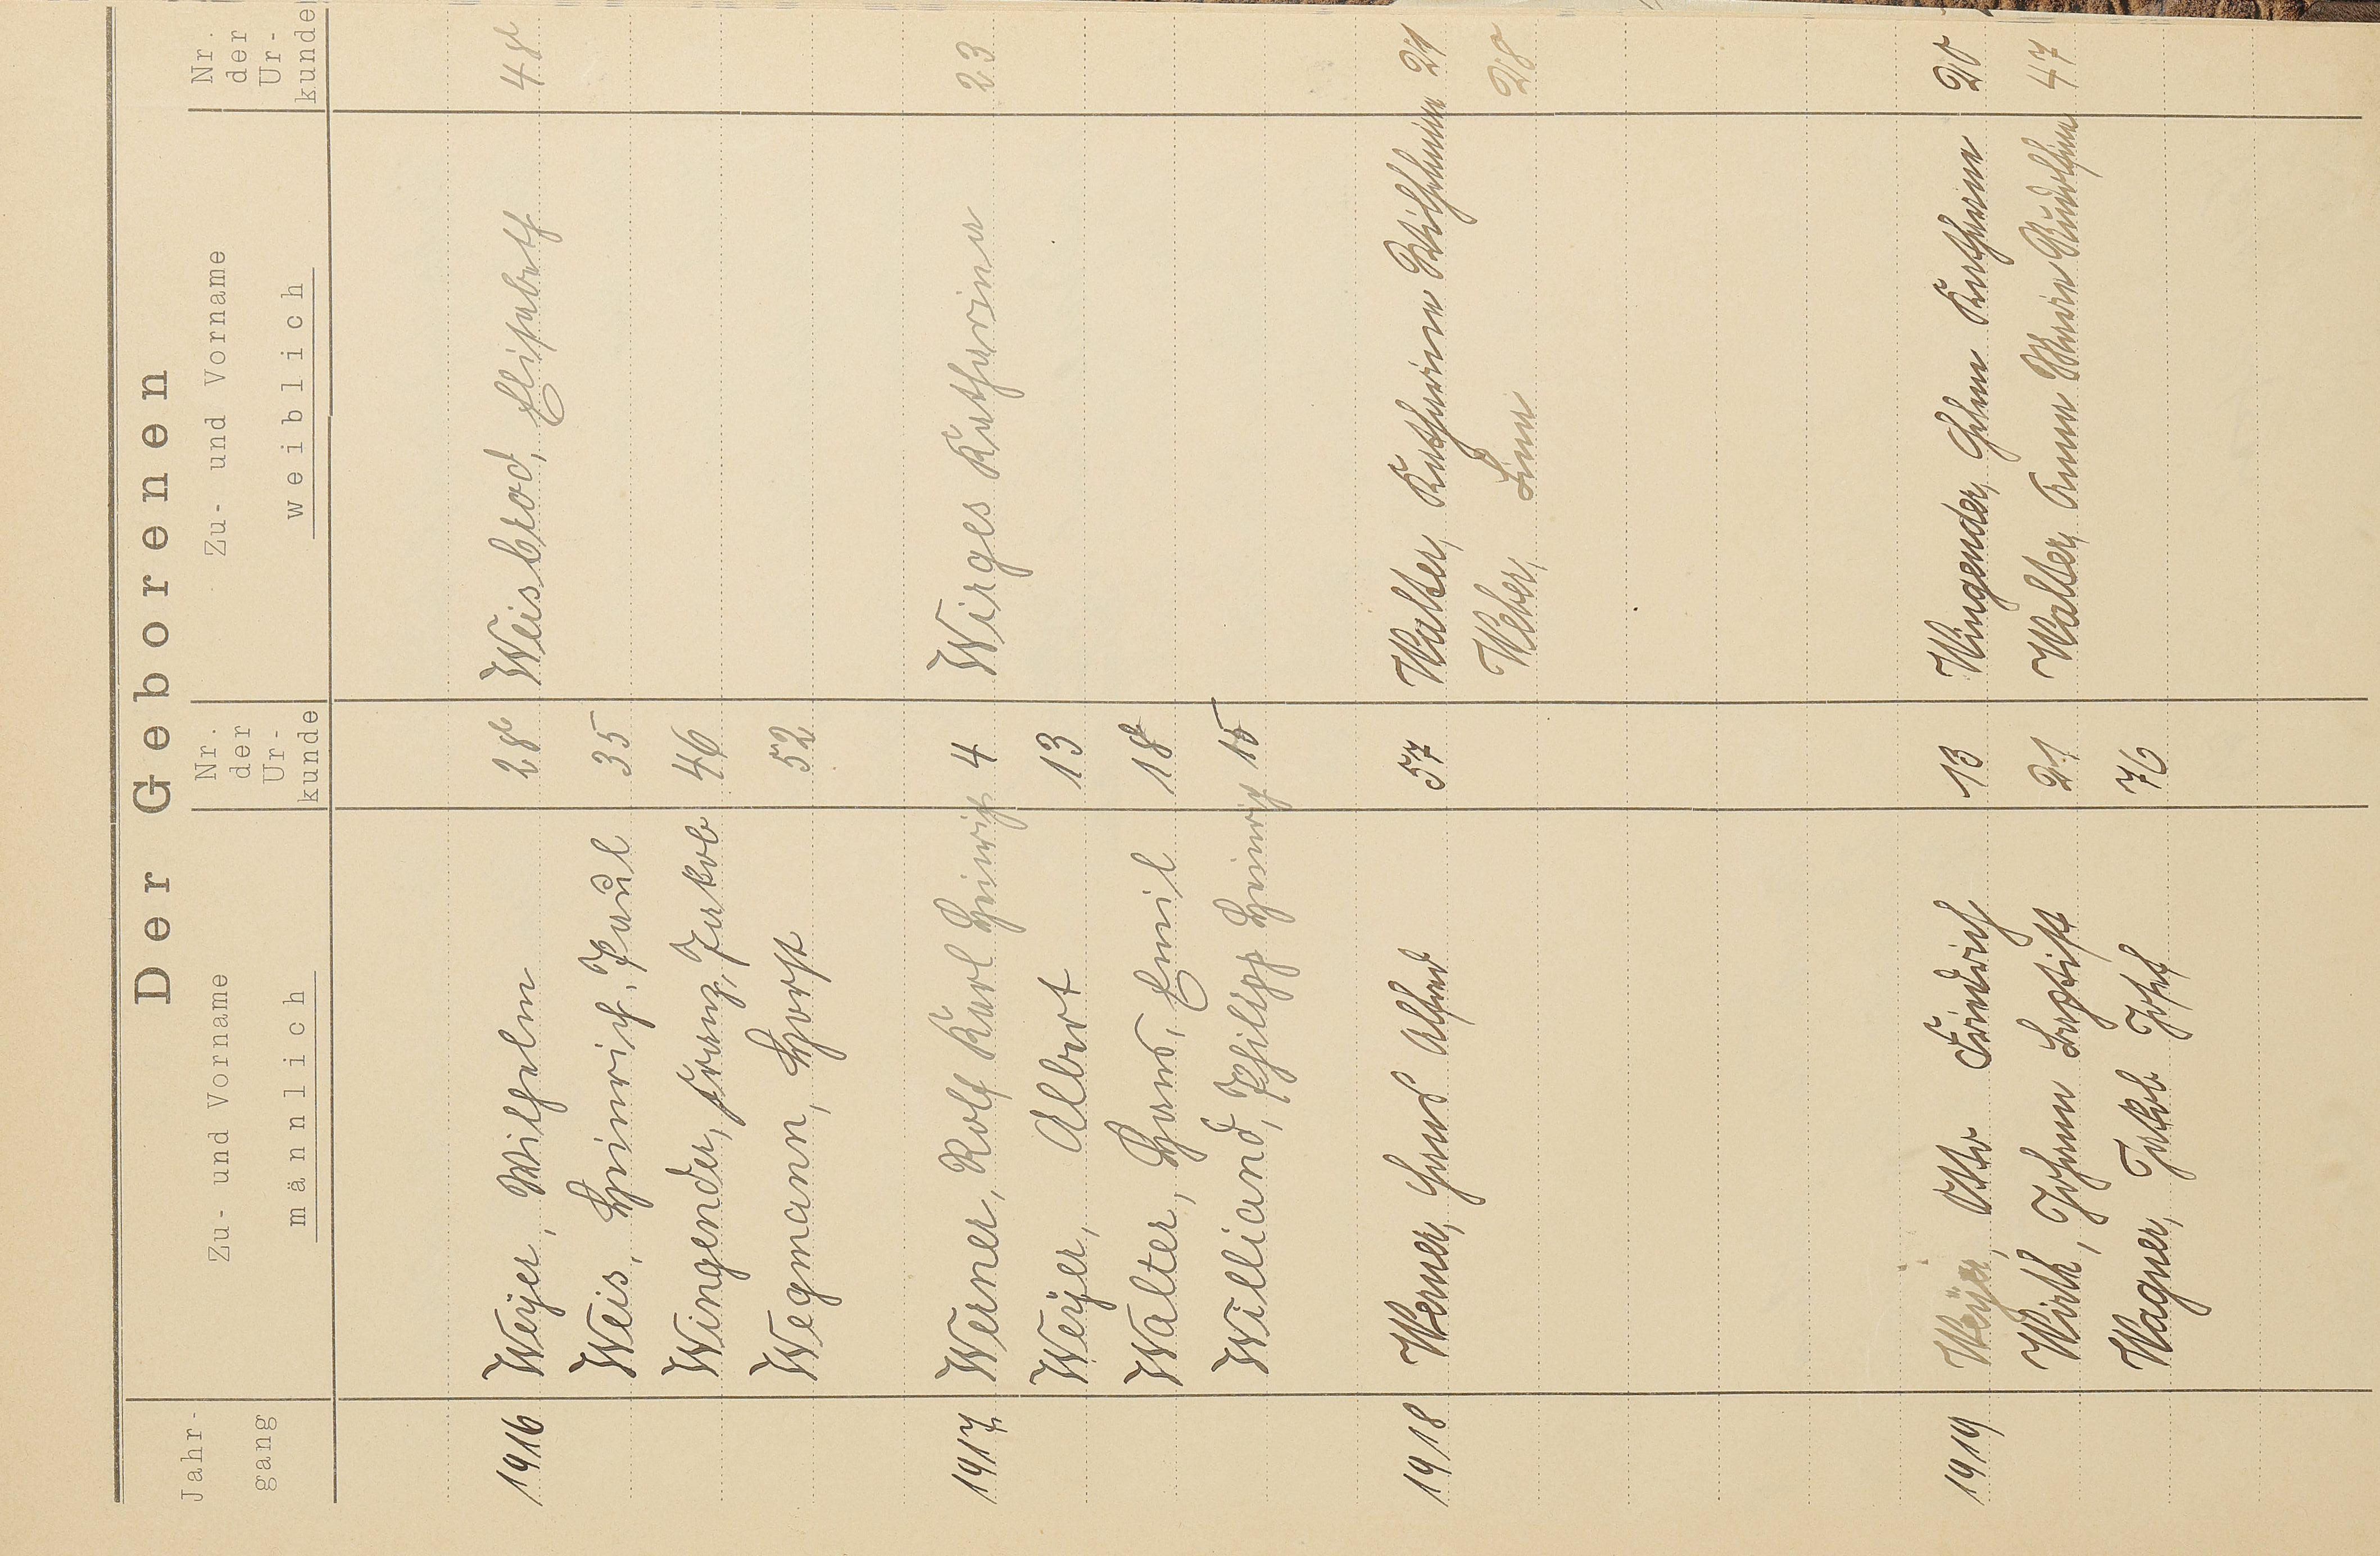 Der Geborenen
Jahrgang Zu- und Vorname männlich Nr. der Urkunde Zu- und Vorname weiblich Nr. der Urkunde
1916 Weyer, Wilhelm 28 Weisbrod, Elisabeth 48
Weis, Heinrich, Paul 35
Wingender, Franz, Jakob 46
Wegmann, Horst 52
1917 Werner, Rolf Karl Heinrich 4 Wirges Katharina 23
Weyer, Albert 13
Walter, Hans, Emil 18
Williand, Philipp Heinrich 15
1918 Werner, Hans Alfred 57 Walter, Katharina Wilhelmine 21
Weber, Lina 28
1919 Weyer, Otto Friedrich 13 Wingender, Helene Katharina 20
Wirth, Johann Baptist 21 Walter, Anna Maria Rudolfine 47
Wagner, Jakob Josef 76